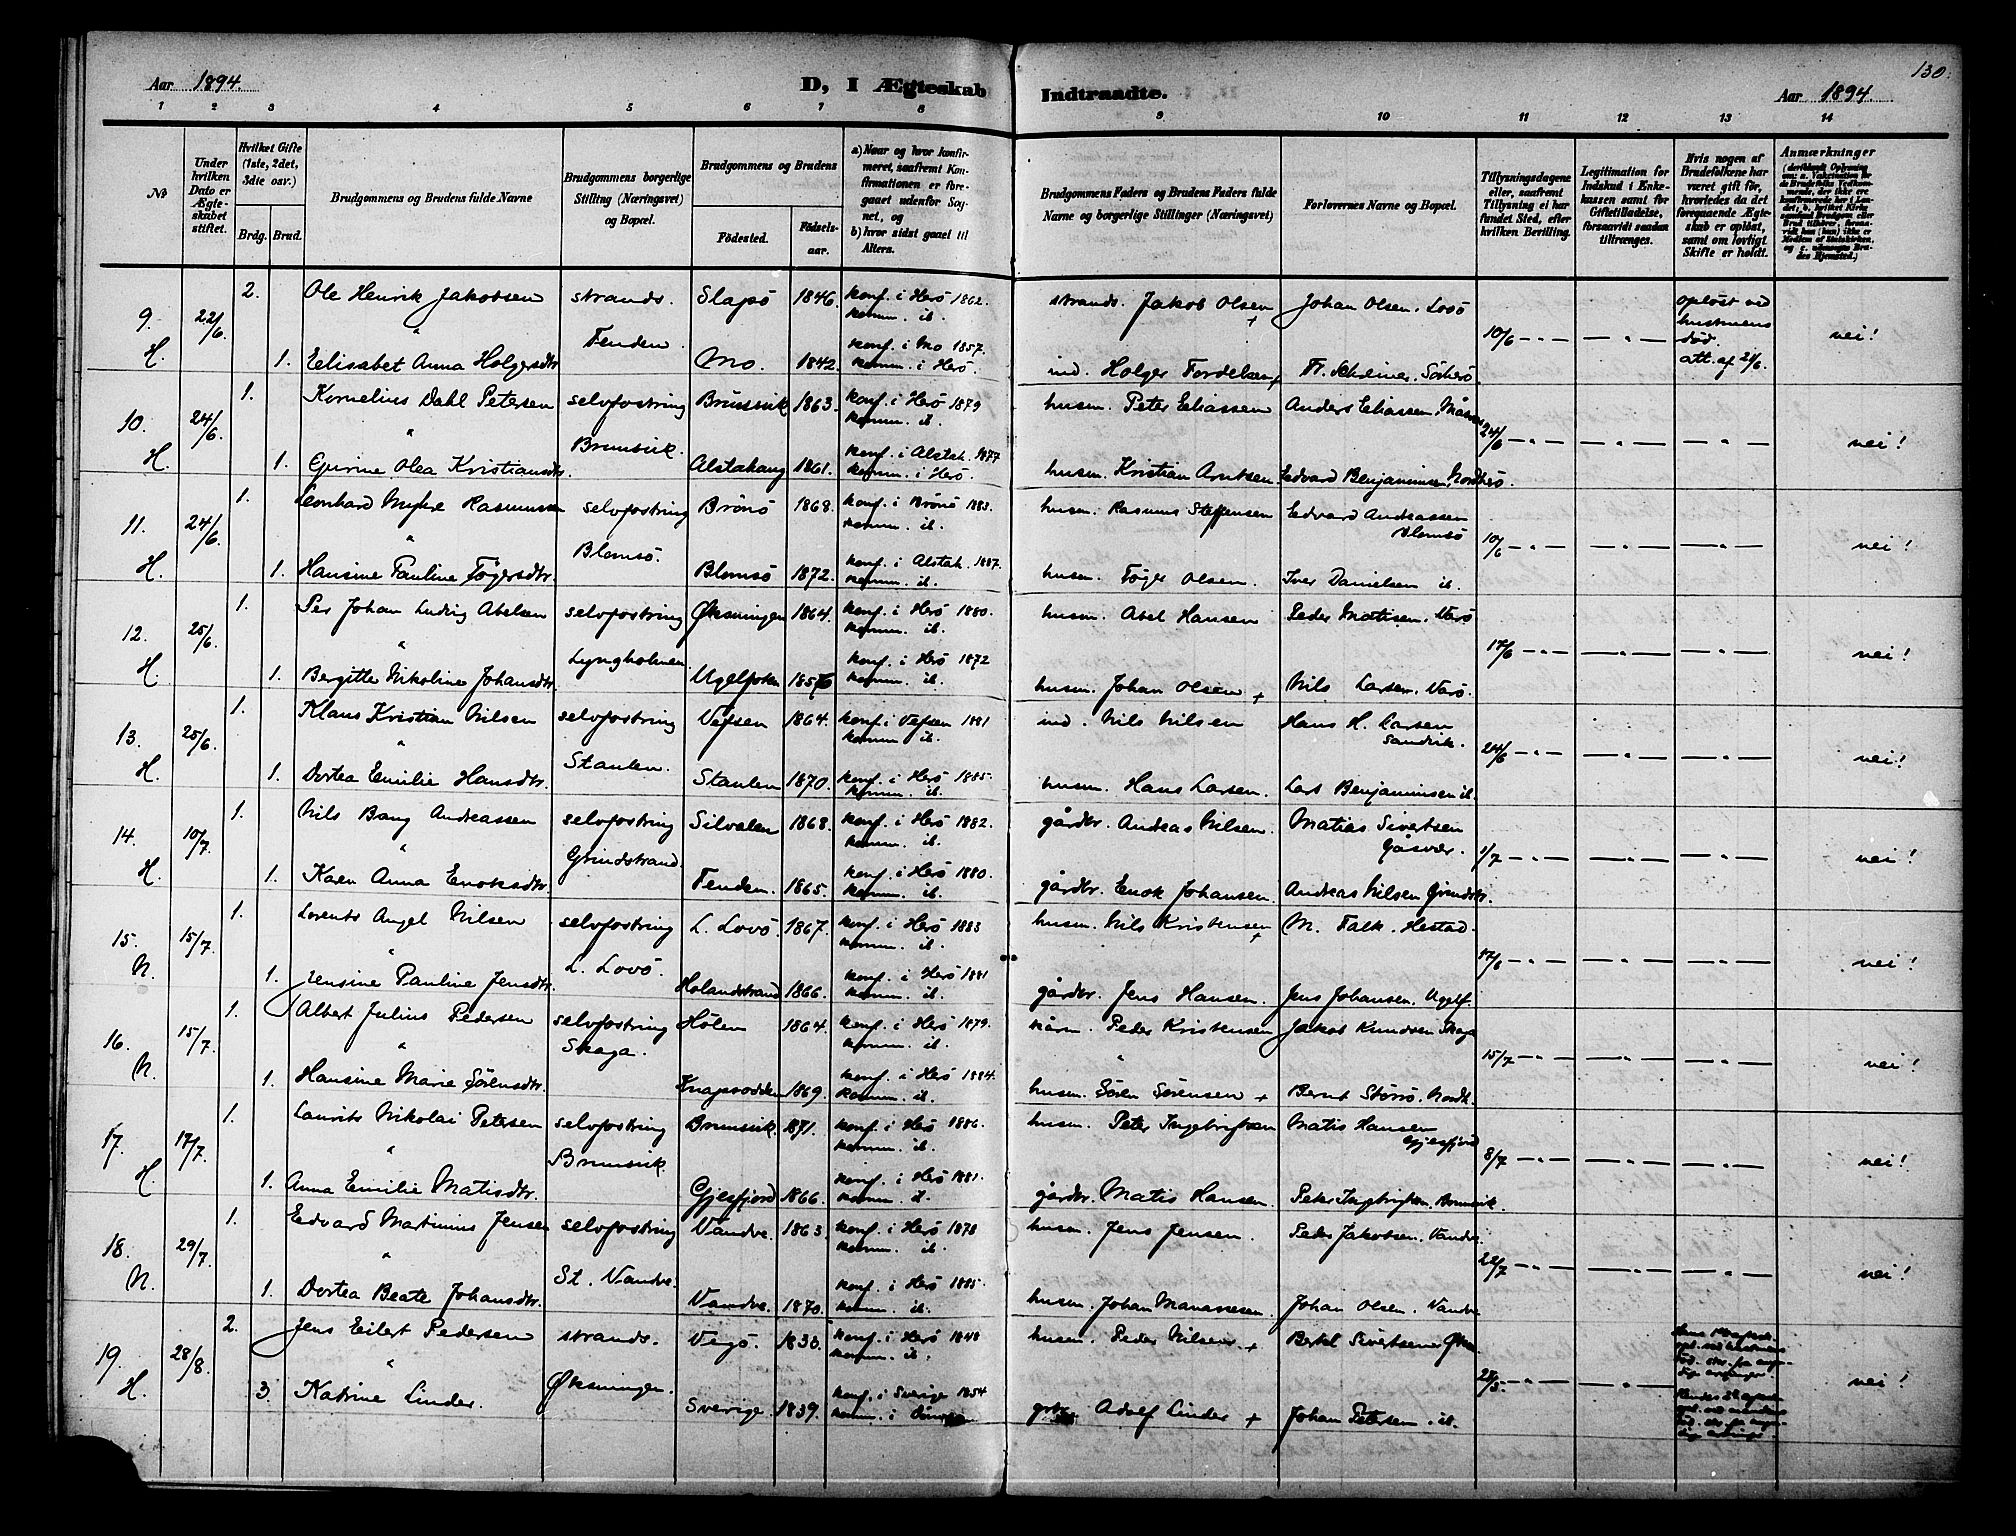 130.
Aar 1894.
D, I Ægteskab Indtraadte.
Aar 1894.
1 2 3 4 5 6 7 8 9 10 11 12 13 14
No
Under hvilken Dato er Ægteskabet stiftet.
Hvilket Gifte (1ste, 2det, 3die osv.)
Brdg. Brud.
Brudgommens og Brudens fulde Navne
Brudgommens borgerlige Stilling (Næringsvei) og Bopæl.
Brudgommens og Brudens
Fødested. Fødselsaar.
a) Naar og hvor konfirmeret, saafremt Konfirmationen er foregaaet udenfor Sognet, og
b) hvor sidst gaaet til Alters.
Brudgommens Faders og Brudens Faders fulde Navne og borgerlige Stillinger (Næringsvei)
Forlovernes Navne og Bopæl.
Tillysningsdagene eller, saafremt Tillysning ei har fundet Sted, efter hvilken Bevilling.
Legitimation for Indskud i Enkekassen samt for Giftetilladelse, forsaavidt saadan tiltrænges.
Hvis nogen af Brudefolkene har været gift før, hvorledes da det foregaaende Ægteskab er opløst, samt om lovligt Skifte er holdt.
Anmærkninger
9. H. 22/6. 2. Ole Henrik Jakobsen strands. Slapö 1846. konf. i Herö 1862. komm. ib. strands. Jakob Olsen + Johan Olsen. Lovö 10/6 — " — — " — opløst ved hustruens död. att. af 21/6. nei!
1. Elisabet Anna Holgersdtr Tenden. Mo. 1842. konf. i Mo 1857. komm. i Herö. ind. Holger Tordelsen + Fr. Schreiner. Sörherö.
10. H. 24/6. 1. Kornelius Dahl Petersen selvfostring Brunsvik 1863. konf. i Herö 1879 komm. ib. husm. Peter Eliassen Anders Eliassen, 24/6 — " — — " — — " — nei!
1. Gurine Olea Kristiansdtr. Brunsvik. Alstahaug 1861. konf. i Alstah. 1877 komm. i Herö. husm. Kristian Arntsen Edvard Benjaminsen, Nordherö.
11. H. 24/6. 1. Leonhard Myhre Rasmussen selvfostring Brönö 1868. konf. i Brönö 1883. komm. ib. husm. Rasmus Steffensen Edvard Andreassen Blomsö 10/6 — " — — " — — " — nei!
1. Hansine Pauline Tögersdtr. Blomsö. Blomsö 1872. konf. i Alstah. 1887. komm. ib. husm. Töger Olsen. Iver Danielsen ib.
12. H. 25/6. 1. Per Johan Ludvig Abelsen selvfostring Øksningen 1864. konf. i Herö 1880. komm. ib. husm. Abel Hansen Peder Matisen. Varö 17/6 — " — — " — — " — nei!
1. Bergitte Nikoline Johansdtr. Lyngholmen Ugelfoten 1856 konf. i Herö 1872 komm. ib. husm. Johan Olsen + Nils Larsen. Varö.
13. H. 25/6. 1. Klaus Kristian Nilsen selvfostring Vefsen 1864. konf. i Vefsen 1881 komm. ib. ind. Nils Nilsen Hans H. Larsen Sandvik. 24/6 — " — — " — — " — nei!
1. Dortea Emilie Hansdtr. Staulen. Staulen 1870. konf. i Herö 1885. komm. ib. husm. Hans Larsen. Lars Benjaminsen ib.
14. H. 10/7. 1. Nils Bang Andreassen selvfostring Silvalen 1868. konf. i Herö 1882. komm. ib. gårdbr. Andreas Nilsen. Matias Sivertsen Gåsvær. 1/7 — " — — " — — " — nei!
1. Karen Anna Enoksdtr. Grindstrand Tenden. 1865. konf. i Herö 1880. komm. ib. gårdbr. Enok Johansen. Andreas Nilsen Grindstr.
15. N. 15/7. 1. Lorents Angel Nilsen selvfostring L. Lovö. 1867. konf. i Herö 1883 komm. ib. husm. Nils Kristensen + M. Falk. Hestad. 17/6 — " — — " — — " — nei!
1. Jensine Pauline Jensdtr. L. Lovö. Holandstrand 1866. konf. i Herö 1881 komm. ib. gårdbr. Jens Hansen. Jens Johansen. Ugelf.
16. N. 15/7. 1. Albert Julius Pedersen selvfostring Hölen 1864. konf. i Herö 1879. komm. ib. kårm. Peder Kristensen Jakob Knudsen Skaga 15/7 — " — — " — — " — nei!
1. Hansine Marie Sörensdtr. Skaga. Knapsodden 1869. konf. i Herö 1884. komm. ib. husm. Sören Sörensen + Bernt Störsö. Nordh.
17. H. 17/7. 1. Laurits Nikolai Petersen selvfostring Brunsvik. 1871. konf. i Herö 1886. komm. ib. husm. Peter Ingebrigtsen Matis Hansen Gjesfjord 8/7 — " — — " — — " — nei!
1. Anna Emilie Matisdtr. Brunsvik Gjesfjord 1866. konf. i Herö 1881. komm. ib. gårdbr. Matis Hansen. Peter Ingebrigtsen Brunsvik.
18. N. 29/7. 1. Edvard Martinius Jensen selvfostring Vandve. 1863. konf. i Herö 1878 komm. ib. husm. Jens Jensen. Peder Jakobsen. Vandve. 22/7 — " — — " — — " — nei!
1. Dortea Beate Johansdtr. St. Vandve. Vandve. 1870. konf. i Herö 1885. komm. ib. husm. Johan Manassesen. Johan Olsen. Vandve
19. H. 28/8. 2. Jens Eilert Pedersen strands. Vegö. 1830. konf. i Herö 1848 komm. ib. husm. Peder Nilsen. + Bertel Sivertsen — " — — " — nei!
3. Katrine Linder. Øksningen. Sverige 1839. konf. i Sverige 1854 komm. i Adolf Linder + Johan Petersen. ib.